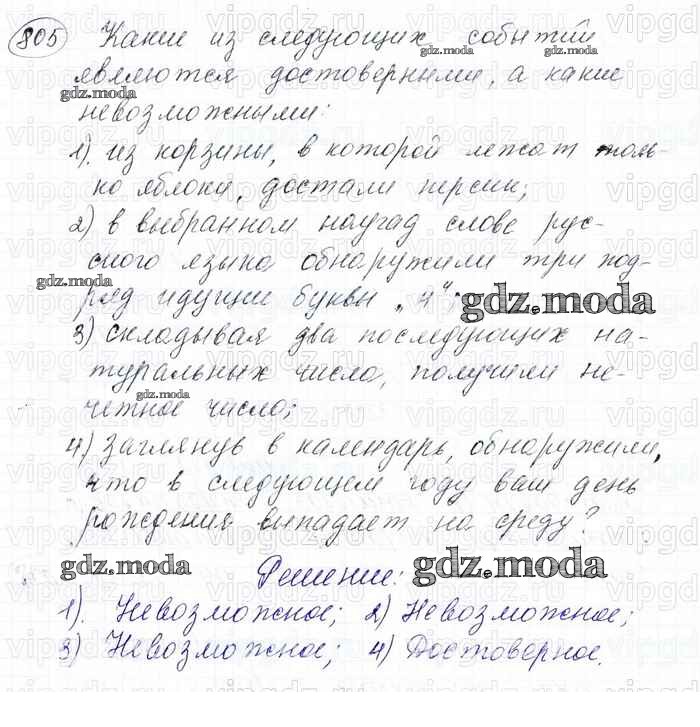 805 Какие из следующих событий
являются достоверными, а какие
невозможными:
1). из корзины, в которой лежат толь-
ко яблоки, достали персик;
2) в выбранном наугад слове рус-
ского языка обнаружили три под-
ряд идущие буквы „ч“;
3) складывая два последующих на-
туральных числа, получили не-
четное число;
4) заглянув в календарь, обнаружили,
что в следующем году ваш день
рождения выпадает на среду?
Решение:
1). Невозможное; 2) Невозможное;
3) Невозможное; 4) Достоверное.
gdz.moda
gdz.moda
gdz.moda
gdz.moda
gdz.moda
gdz.moda
gdz.moda
gdz.moda
gdz.moda
vipgdz.ru